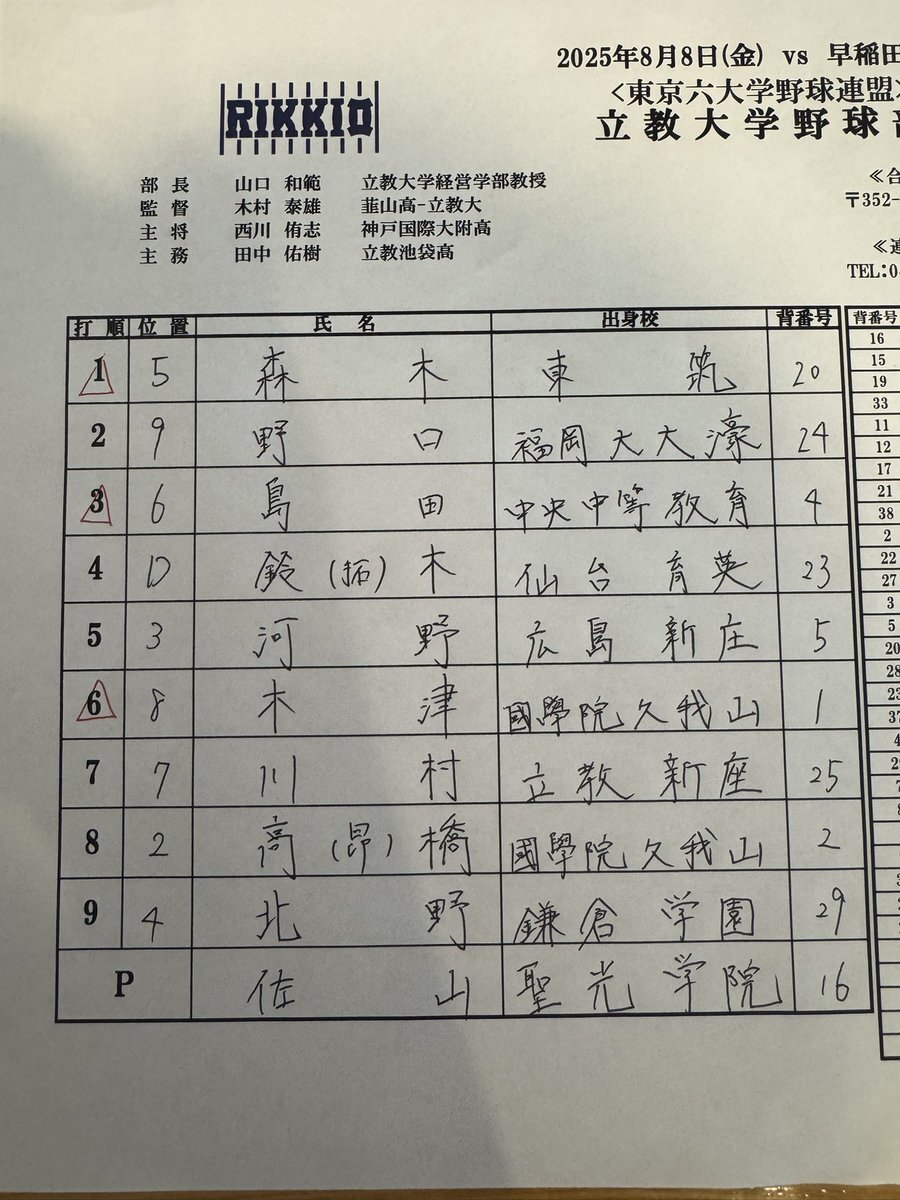 2025年8月8日(金) vs 早稲田
<東京六大学野球連盟>
RIKKIO
立教大学野球部
部長 山口 和範 立教大学経営学部教授
監督 木村 泰雄 韮山高-立教大
主将 西川 侑志 神戸国際大附高
主務 田中 佑樹 立教池袋高
〒352-
TEL:0
打順 位置 氏名 出身校 背番号
1 5 森木 東筑 20
2 9 野口 福岡大大濠 24
3 6 島田 中央中等教育 4
4 D 鈴(拓)木 仙台育英 23
5 3 河野 広島新庄 5
6 8 木津 國學院久我山 1
7 7 川村 立教新座 25
8 2 高(昂)橋 國學院久我山 2
9 4 北野 鎌倉学園 29
P 佐山 聖光学院 16
背番号
16
15
19
33
11
12
17
21
38
2
22
27
3
5
20
28
23
37